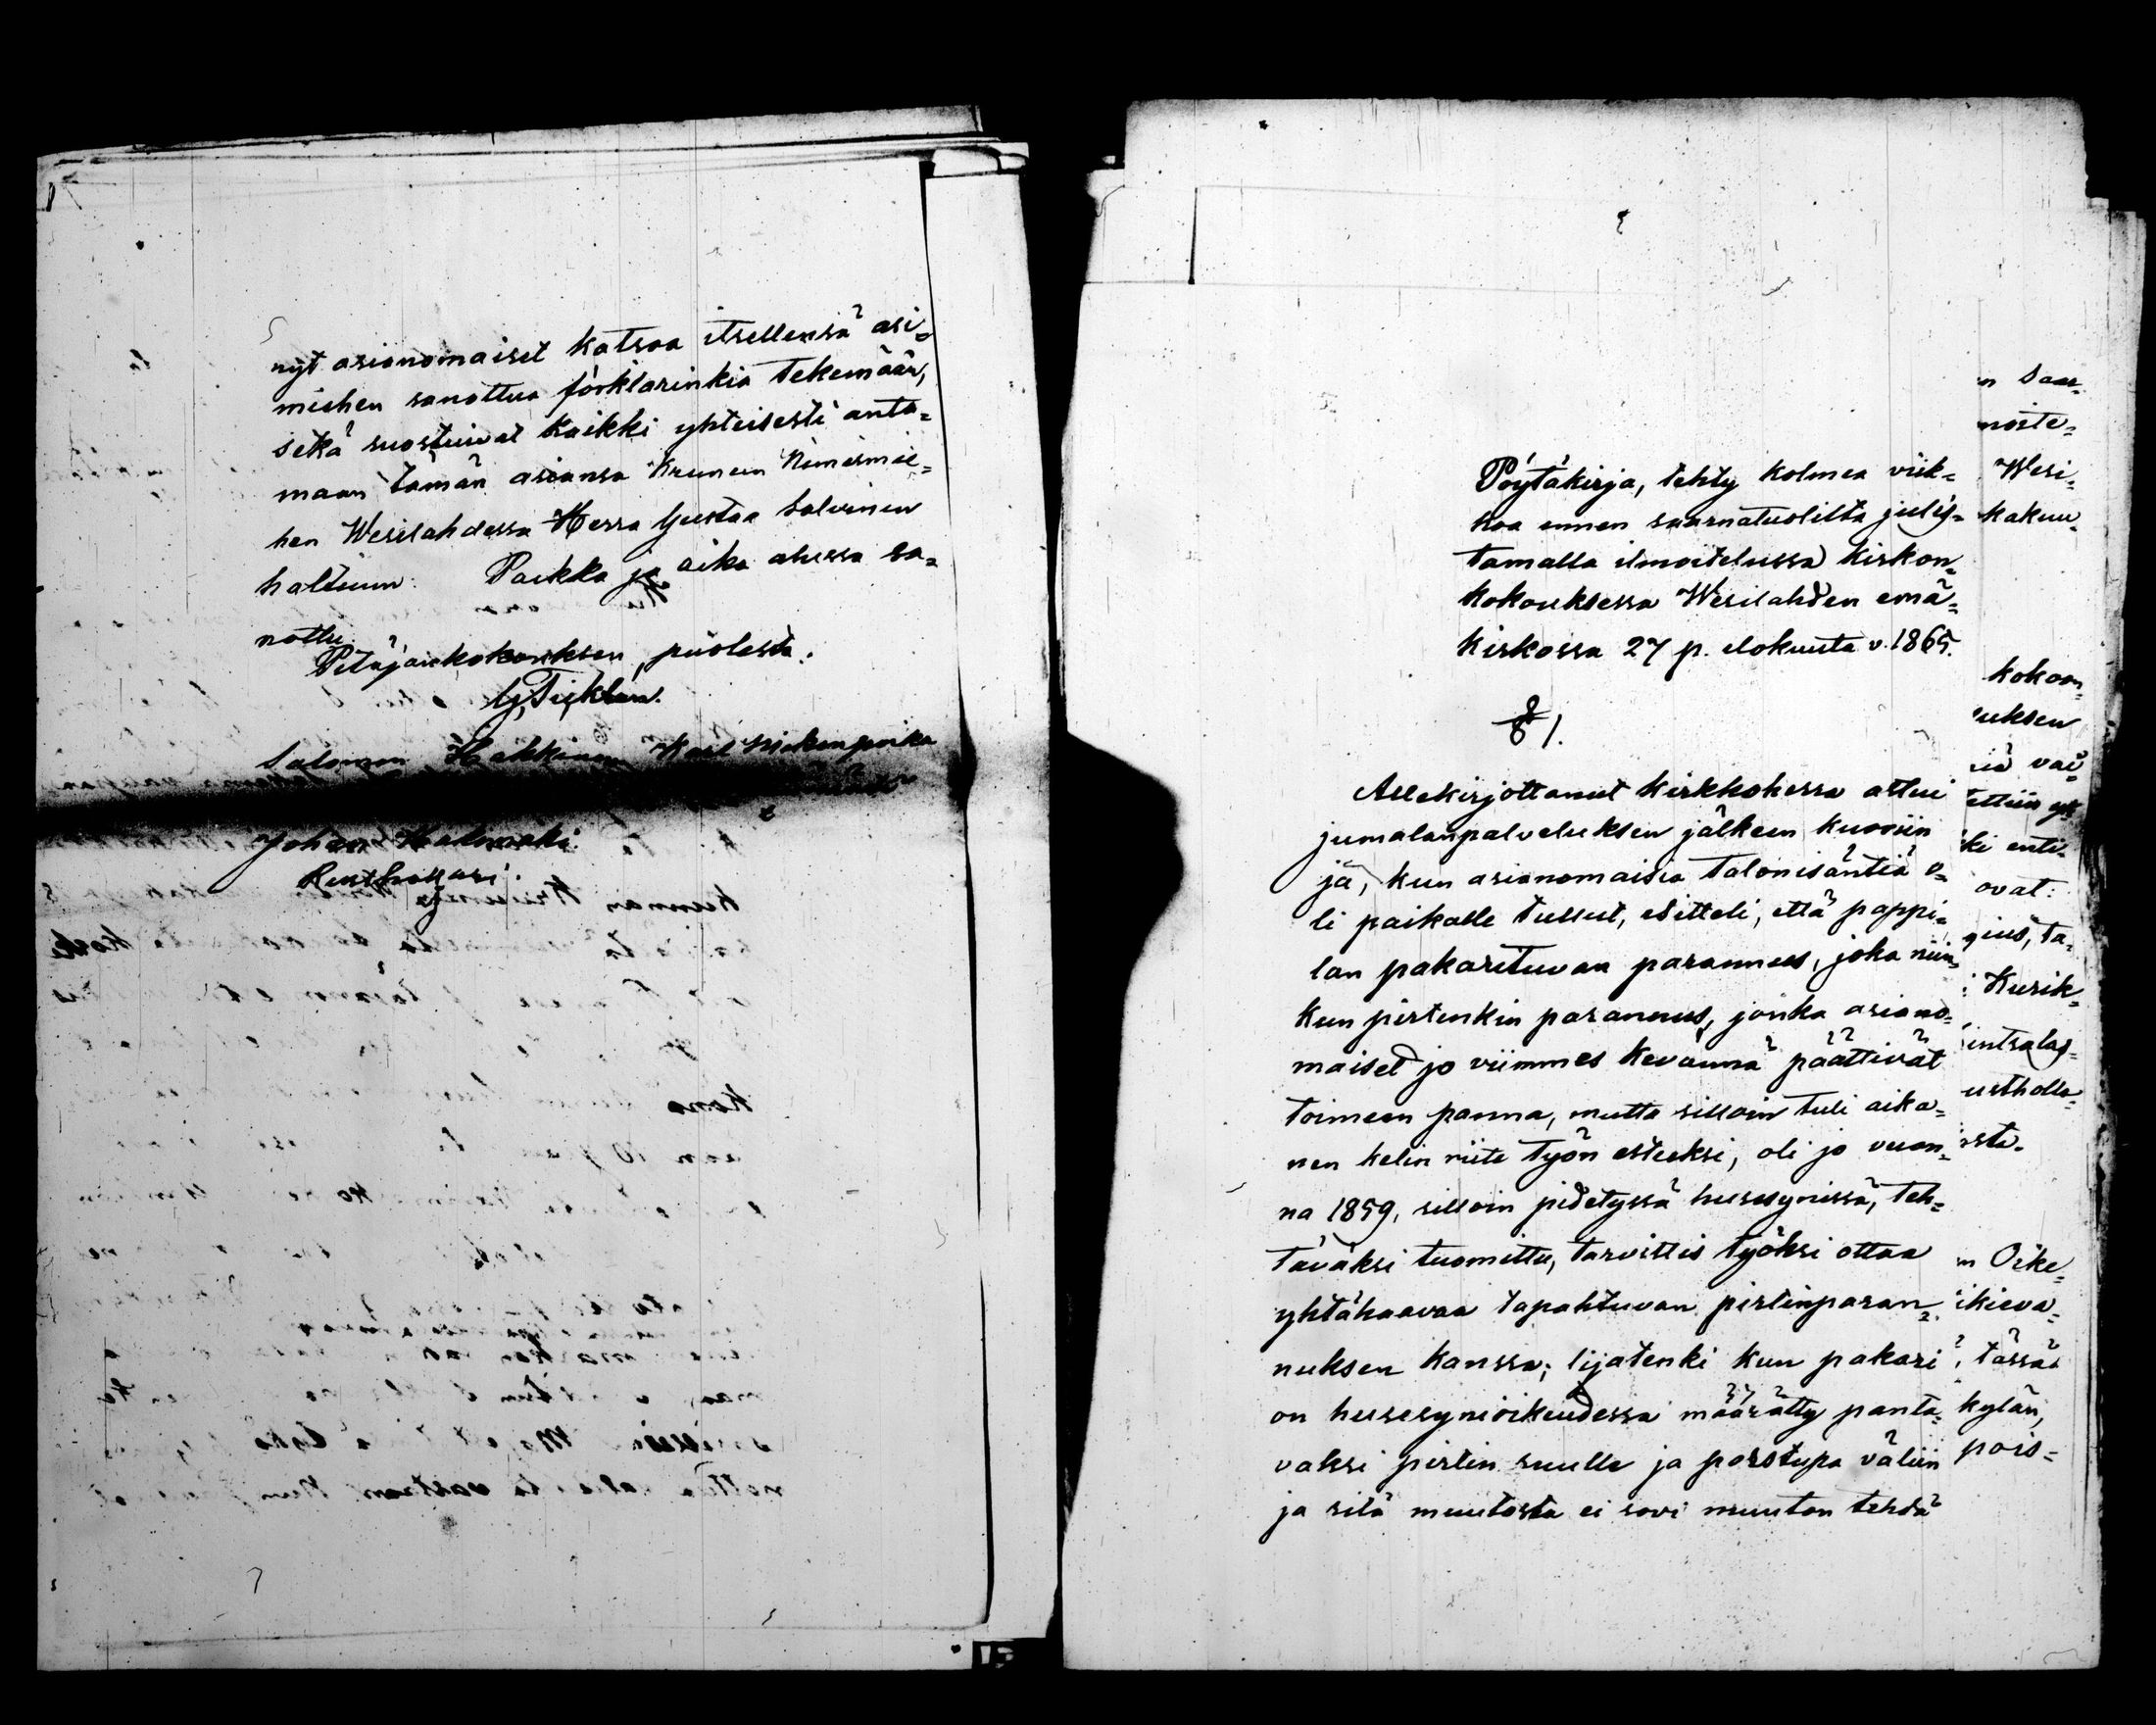 nyt asianomaiset katsoa itsellensä asi=
miehen sanottua förklarinkia tekemään,
sekä suostuivat kaikki yhteisesti anta=
maan tämän asiansa Kruunun Nimismie=
hen Wesilahdessa Herra Gustaa Salvinin
haltuun. Paikka ja aika alussa sa=
nottu.
Pitäjänkokouksen puolesta:
Salomon Hakkinen Karl
Johan
Rusthollari.
Pöytäkirja, tehty kolmea viik=
koa ennen saarnatuolilta julis=
tamalla ilmoitetussa kirkon=
kokouksessa Wesilahden emä=
kirkossa 27 p. elokuuta v. 1865.
§ 1.
Allekirjoittanut kirkkoherra astui
jumalanpalveluksen jälkeen kuoriin
ja, kun asianomaisia talonisäntiä o=
li paikalle tullut, esitteli, että pappi=
lan pakarituvan parannus, joka niin=
kun pirtinkin parannus, jonka asiano=
maiset jo viimmes keväunä päättivät
toimeen panna, mutta silloin tuli aika=
nen kelin riite työn esteeksi, oli jo vuon=
na 1859, silloin pidetyssä huusesynissä, teh=
täväksi tuomittu, tarvittis työksi ottaa
yhtähaavaa tapahtuvan pirtinparan=
nuksen kanssa; lijatenki kun pakari
on huusesynioikeudessa määrätty panta=
vaksi pirtin suulle ja porstupa väliin
ja sitä muutosta ei sovi muuton tehdä
n Saar=
noite=
Wesi=
kakuu=
kokoon=
uksen
vai=
ki enti=
ovat:
gius, ta=
Kurik=
ustholla=
n Oike=
ikieva=
tässä
kylän,
pois=